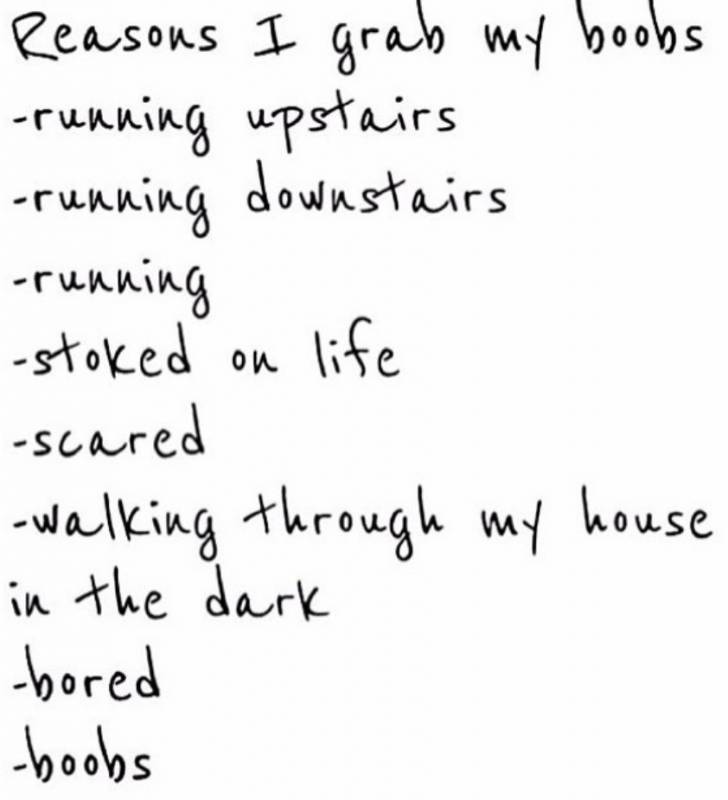 Reasons I grab my boobs
-running upstairs
-running downstairs
-running
-stoked on life
-scared
-walking through my house
in the dark
-bored
-boobs